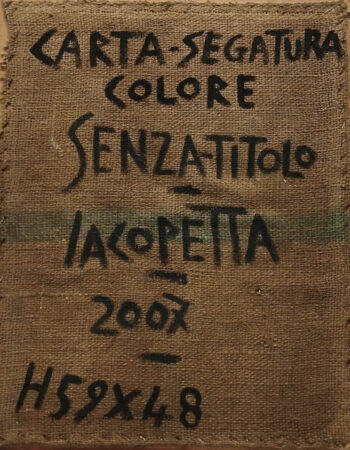 CARTA-SEGATURA
COLORE
SENZA-TITOLO
-
IACOPETTA
-
2007
-
H59X48